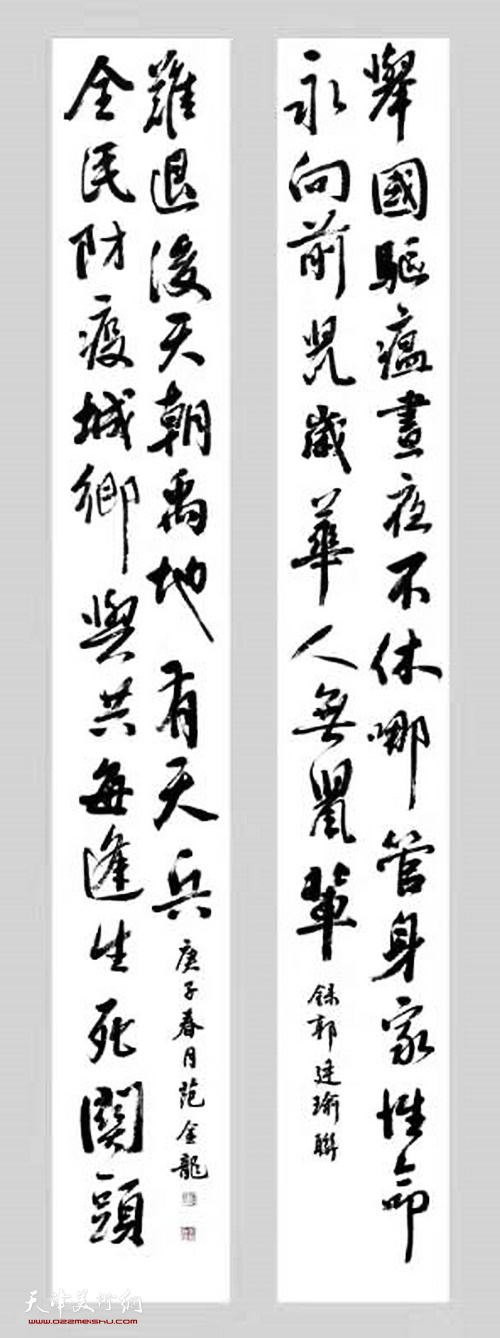 舉國驅瘟晝夜不休哪管身家性命
永向前鼠歲華人無鼠輩
錄郭建瑜聯
全民防疫城鄉與共每逢生死關頭
難退後天朝禹地有天兵
庚子春月范金龍
天津美术网
www.022meishu.com